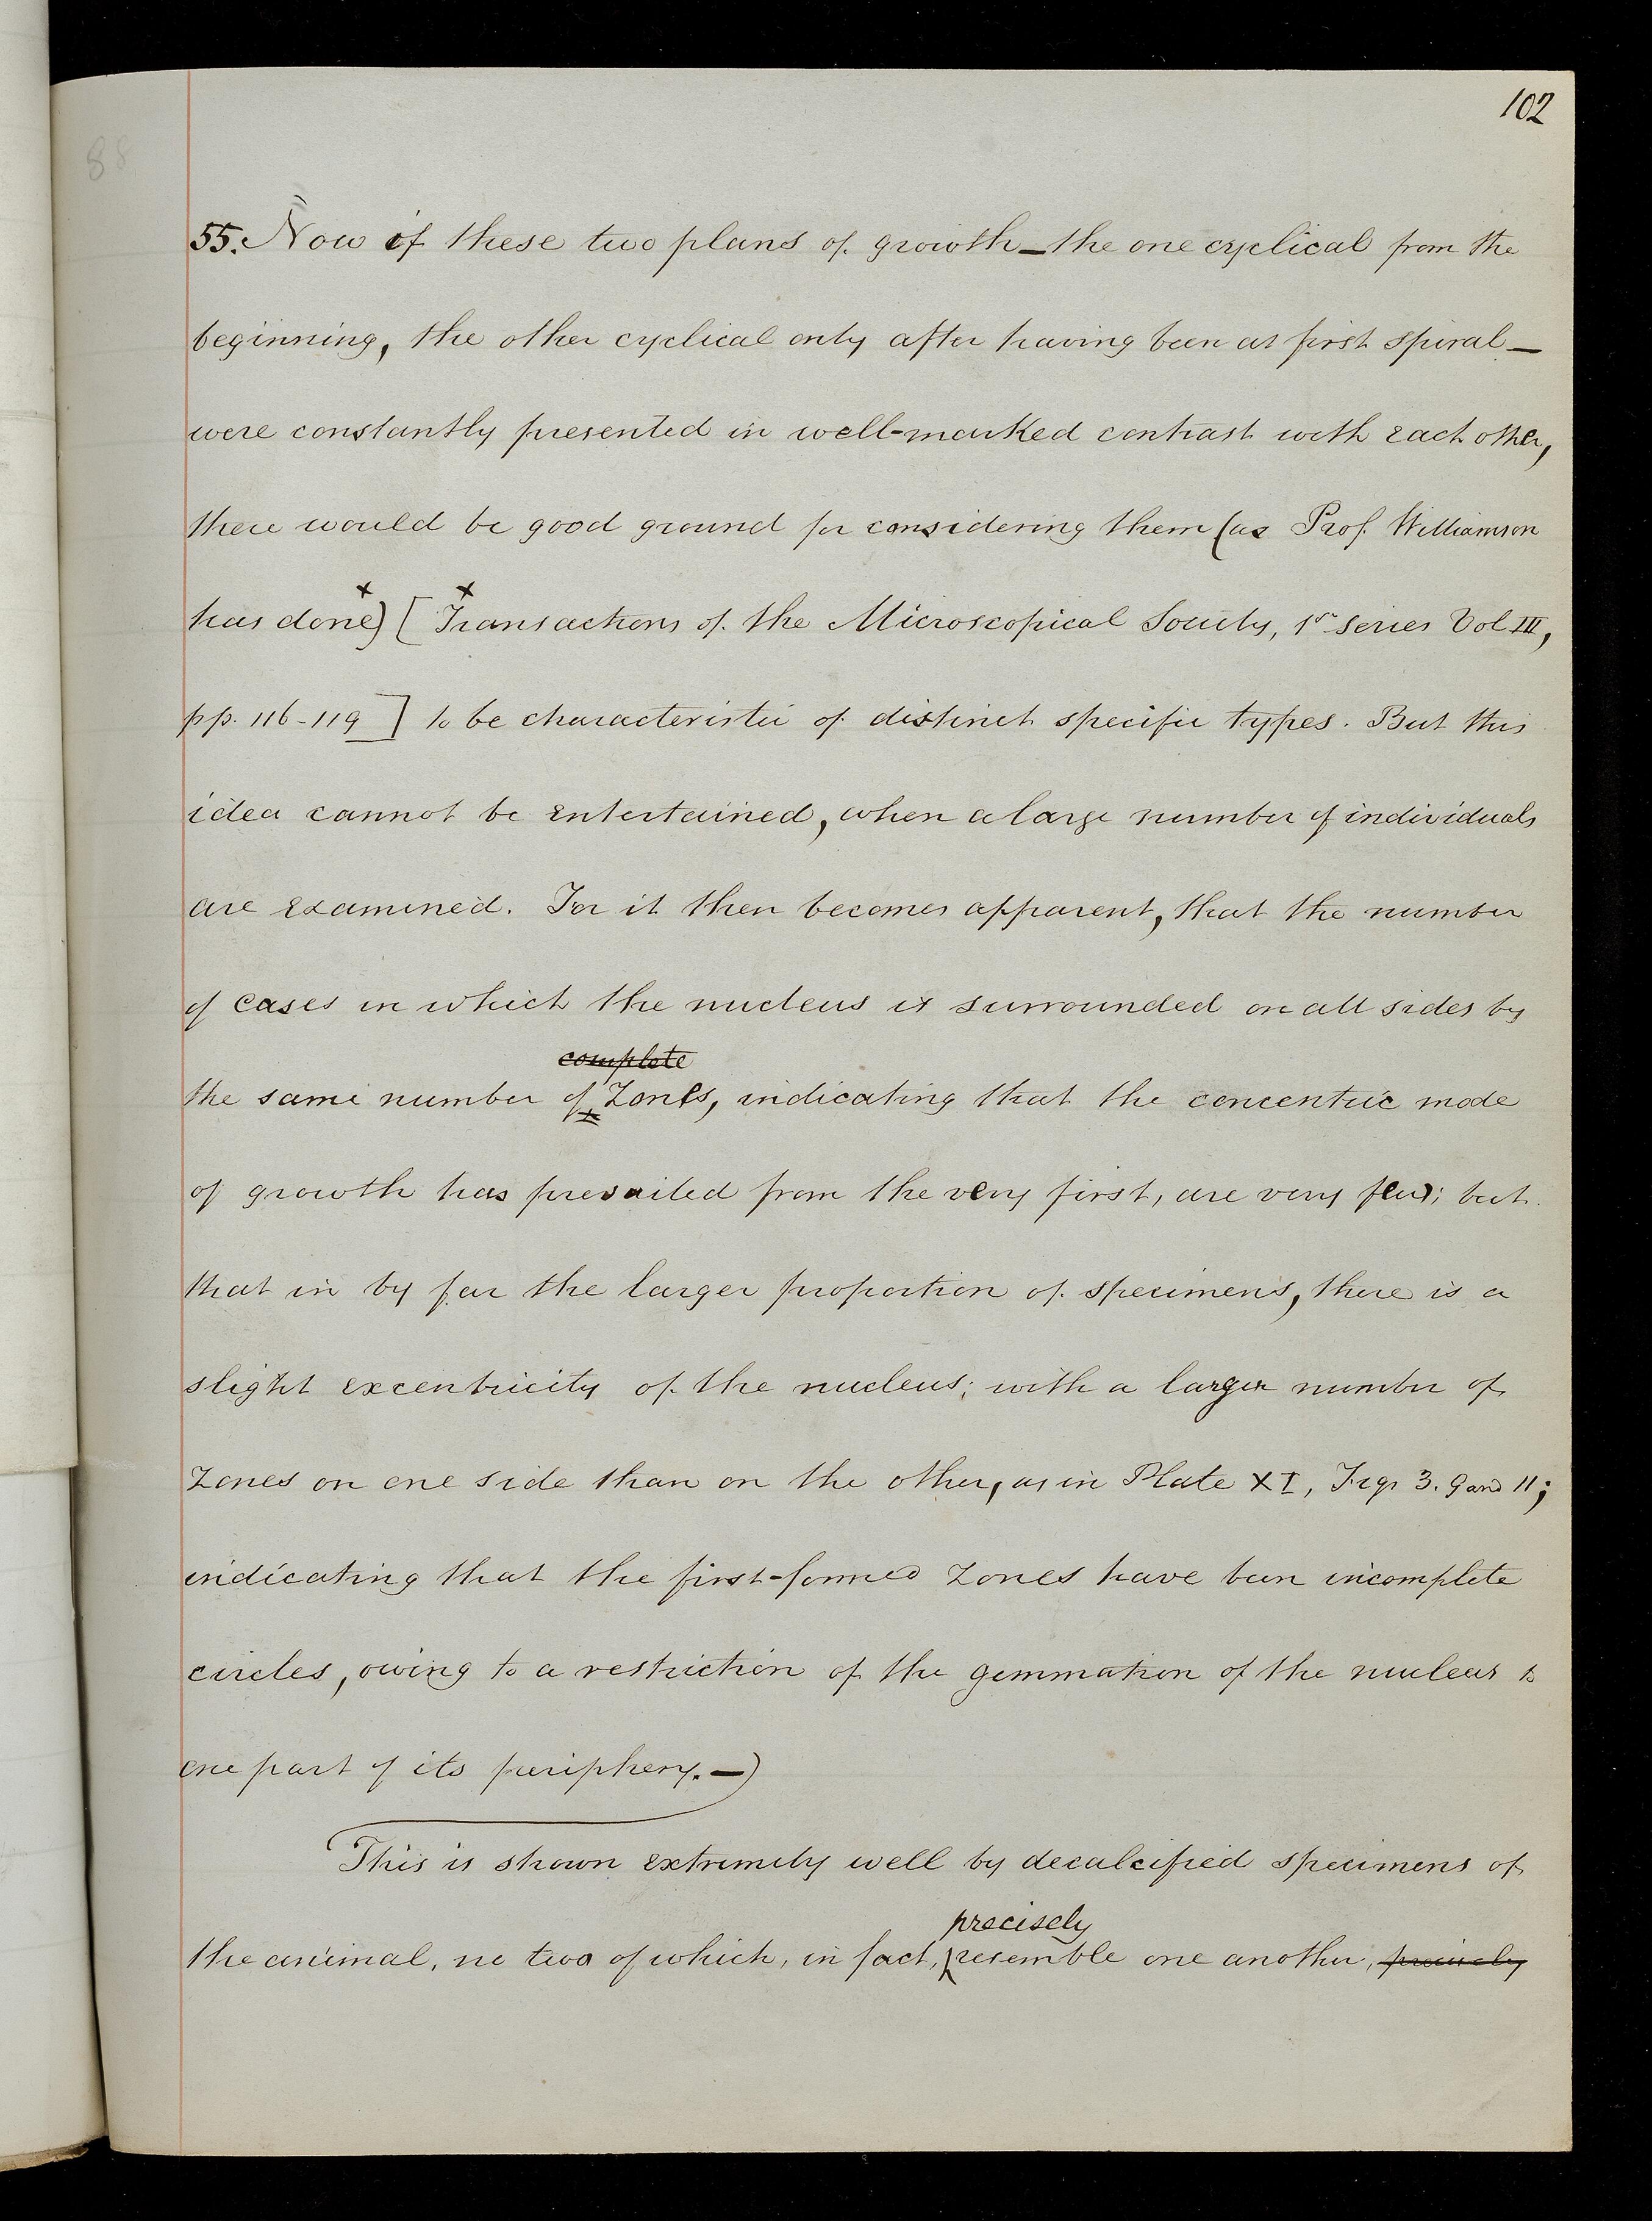 102
88
55. Now if these two plans of growth—the one cyclical from the
beginning, the other cyclical only after having been at first spiral—
were constantly presented in well-marked contrast with each other,
there would be good ground for considering them (as Prof. Williamson
has done)x [xTransactions of the Microscopical Society, 1st series Vol III,
pp. 116-119] to be characteristic of distinct specific types. But this
idea cannot be entertained, when a large number of individuals
are examined. For it then becomes apparent, that the number
of cases in which the nucleus is surrounded on all sides by
complete
the same number of zones, indicating that the concentric mode
of growth has prevailed from the very first, are very few; but
that in by far the larger proportion of specimens, there is a
slight excentricity of the nucleus; with a larger number of
zones on one side than on the other, as in Plate XI, Figs 3. 9 and 11;
indicating that the first-formed zones have been incomplete
circles, owing to a restriction of the gemmation of the nucleus to
one part of its periphery.—)
This is shown extremely well by decalcified specimens of
precisely
the animal, no two of which, in fact, resemble one another, precisely